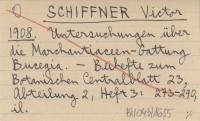 O SCHIFFNER Victor
1908. Untersuchungen über
die Marchantiaceen-Gattung
Bucegia. - Beihefte zum
Botanischen Centralblatt 23,
Abteilung 2, Heft 3: 273-290,
il.